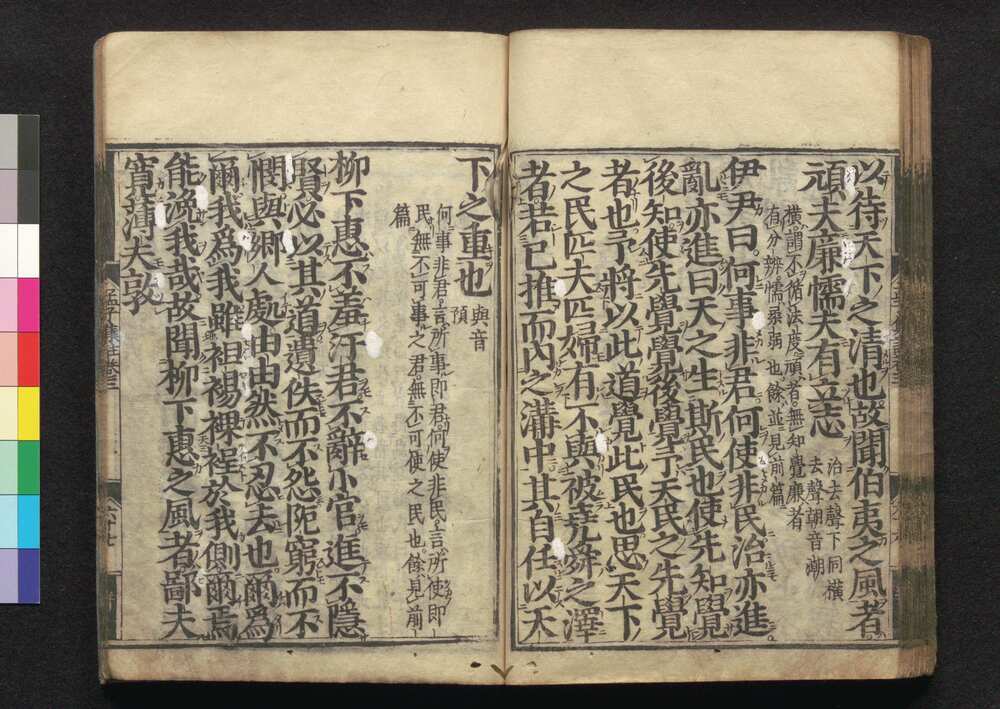 以待天下之清也故聞伯夷之風者
頑夫廉懦夫有立志
治去聲下同橫
去聲朝音潮
橫謂不循法度頑者無知覺廉者
有分辨懦柔弱也餘並見前篇
伊尹曰何事非君何使非民治亦進
亂亦進曰天之生斯民也使先知覺
後知使先覺覺後覺予天民之先覺
者也予將以此道覺此民也思天下
之民匹夫匹婦有不與被堯舜之澤
者若己推而內之溝中其自任以天
下之重也
與音
預
何事非君言所事即君何使非民言所使即
民無不可事之君無不可使之民也餘見前
篇
柳下惠不羞汙君不辭小官進不隱
賢必以其道遺佚而不怨阨窮而不
憫與鄉人處由由然不忍去也爾為
爾我為我雖袒裼裸裎於我側爾焉
能浼我哉故聞柳下惠之風者鄙夫
寬薄夫敦